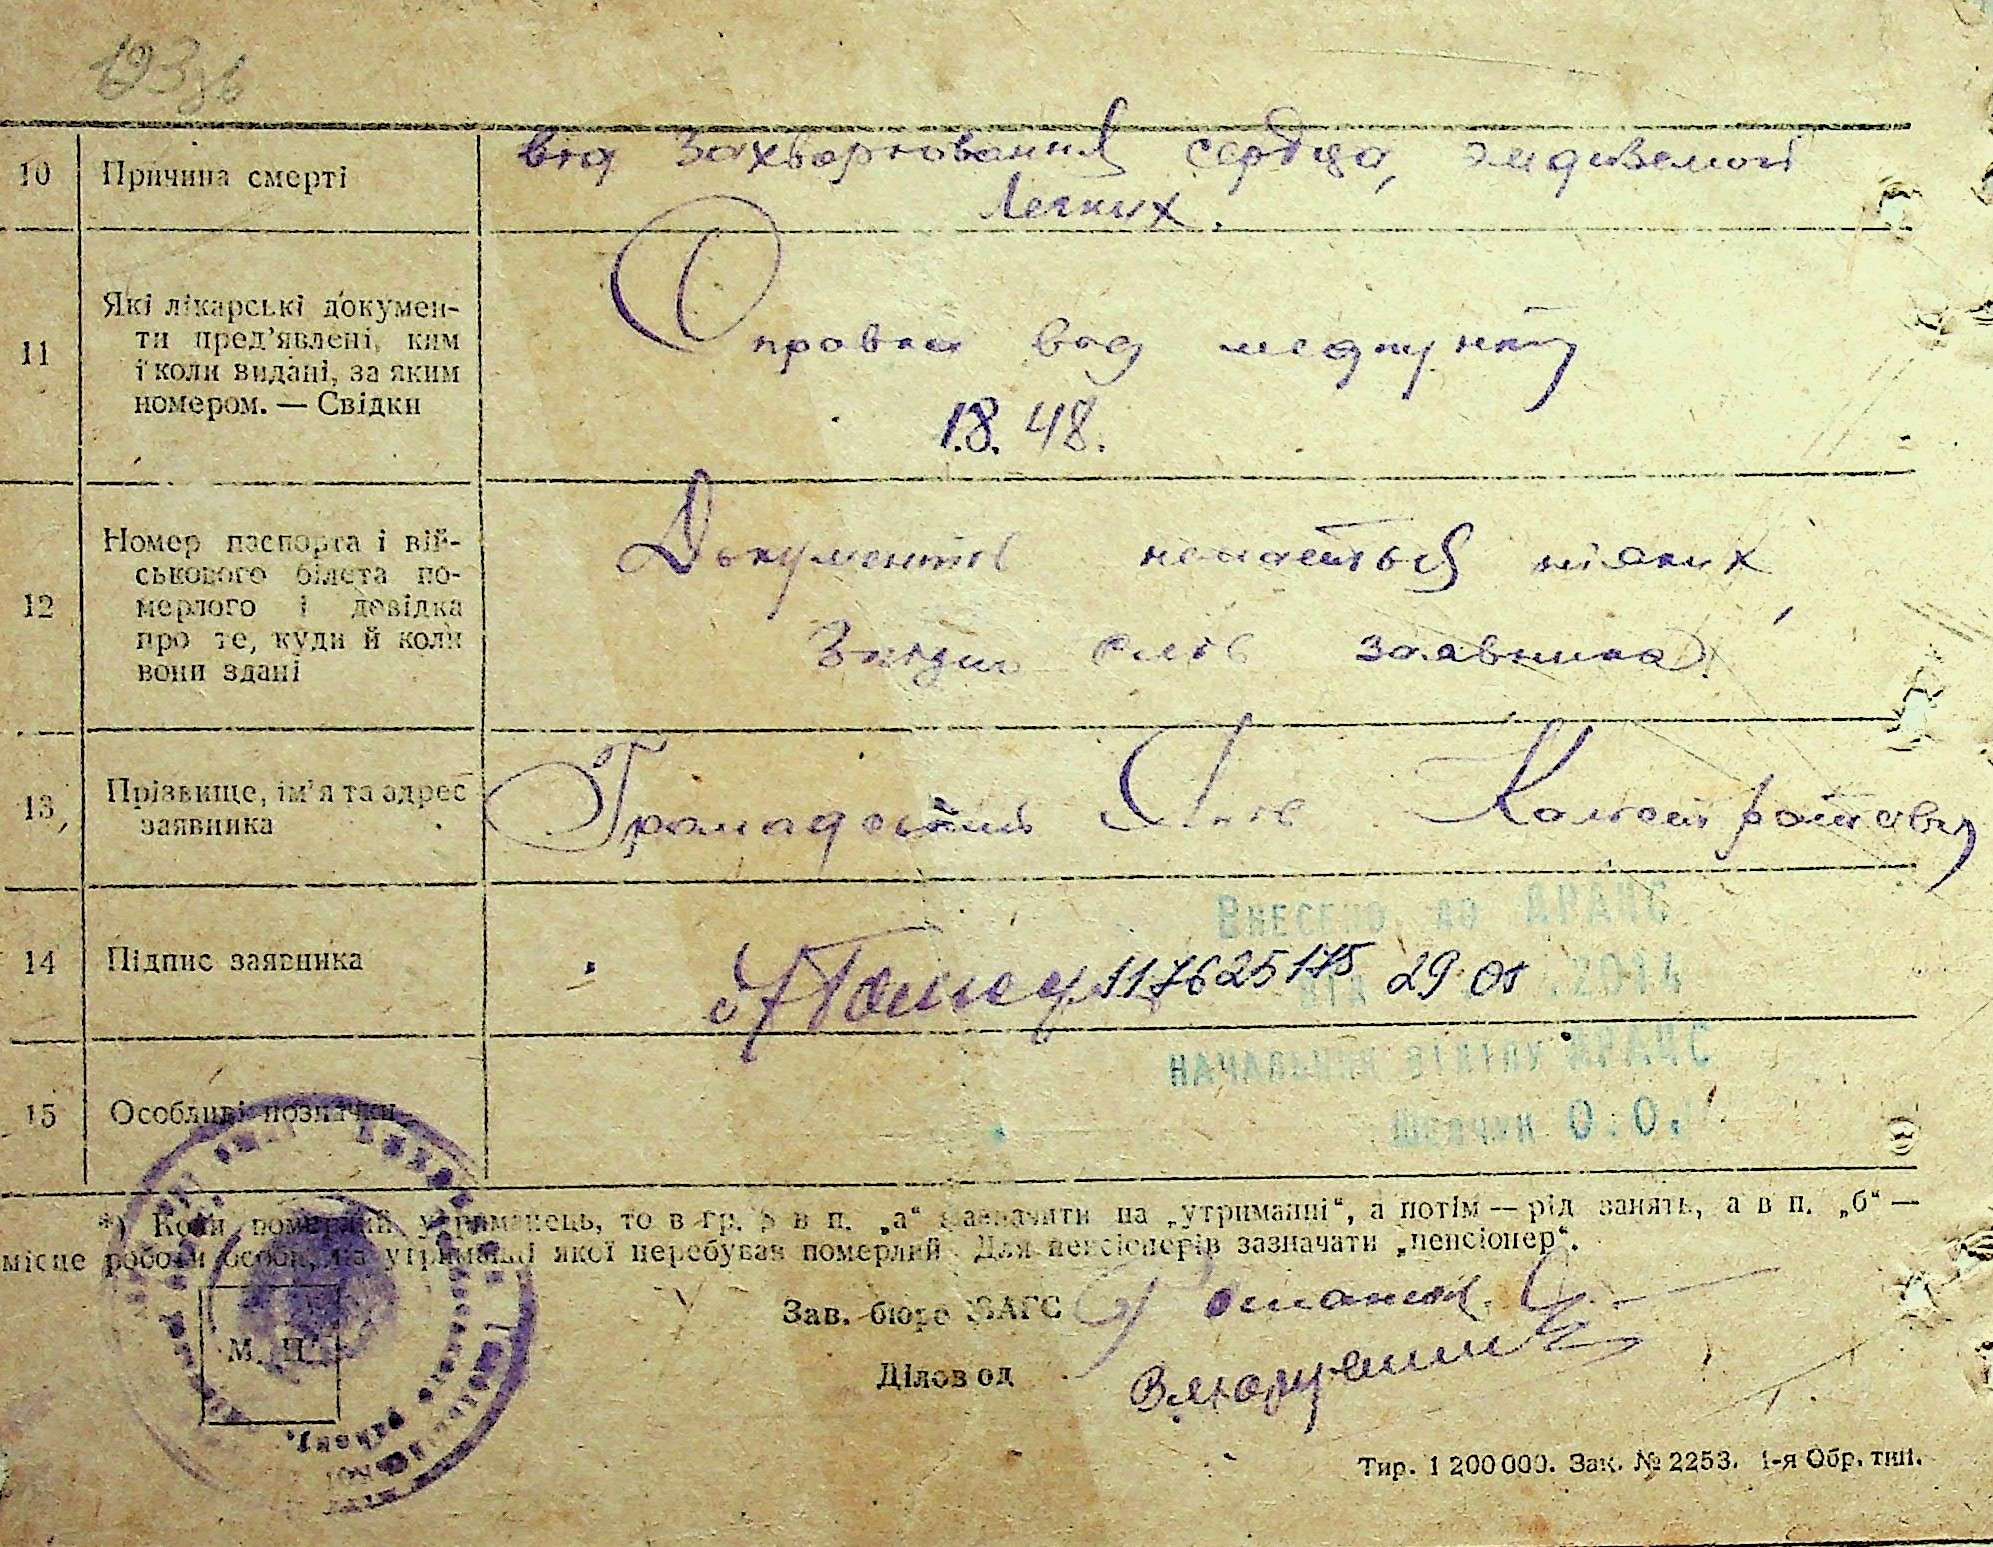 10 Причина смерті
від захворювання сердця, эмдиземої
легких.
11 Які лікарські докумен-
ти пред'явлені, ким
і коли видані, за яким
номером. — Свідки
Справка від медпункту
1.8. 48.
12 Номер паспорта і вій-
ськового білета по-
мерлого і довідка
про те, куди й коли
вони здані
Документів немається ніяких,
Зпідпи слів заявника.
13 Прізвище, ім'я та адрес
заявника
Громадський Яків Калістратович
14 Підпис заявника
117625175 29 01
Внесено до ДРАЦС
2014
15 Особливі позначки
начальник відділу ДРАЦС
Шевчук О.О.
*) Коли померлий утриманець, то в гр. 5 в п. „а“ зазначити на „утриманні“, а потім — рід занять, а в п. „б“ —
місце роботи особи, на утриманні якої перебував померлий. Для пенсіонерів зазначати „пенсіонер“.
Зав. бюро ЗАГС
Діловод
М. П.
Тир. 1 200 000. Зак. № 2253. 1-я Обр. тип.